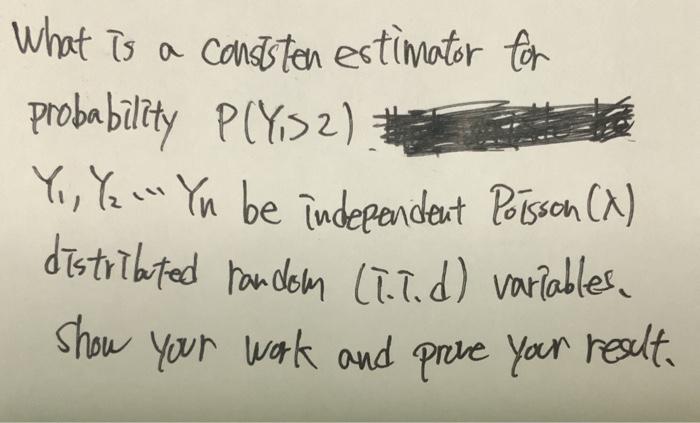 What is a consisten estimator for
probability P(Y₁>2).
Y₁, Y₂ ... Yn be independent Poisson(λ)
distributed random (i.i.d) variables.
Show your work and prove your result.